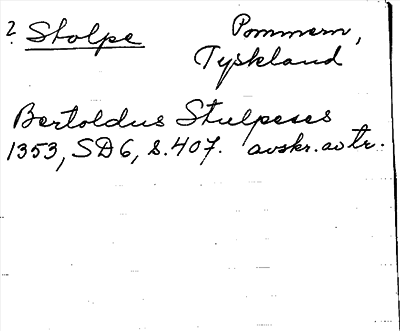 ? Stolpe Pommern,
Tyskland
Bertoldus Stulpeses
1353, SD6, s.407. avskr. av tr.